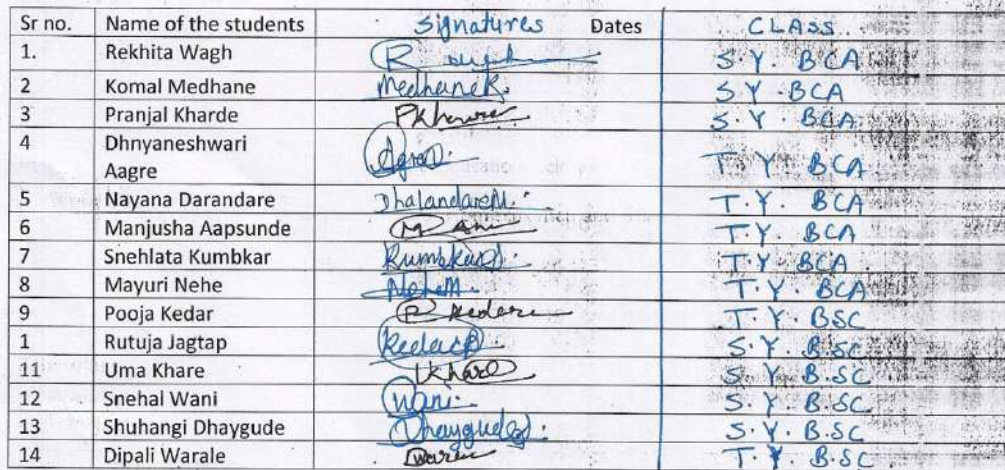 Sr no. Name of the students Signatures Dates CLASS
1. Rekhita Wagh S.Y. BCA
2 Komal Medhane MedhaneK. S.Y. BCA
3 Pranjal Kharde S.Y. BCA
4 Dhnyaneshwari
Aagre T.Y. BCA
5 Nayana Darandare T.Y. BCA
6 Manjusha Aapsunde T.Y. BCA
7 Snehlata Kumbkar T.Y. BCA
8 Mayuri Nehe NeheM. T.Y. BCA
9 Pooja Kedar T.Y. BSC
1 Rutuja Jagtap S.Y. B.SC
11 Uma Khare S.Y. B.SC
12 Snehal Wani Wani. S.Y. B.SC
13 Shuhangi Dhaygude S.Y. B.SC
14 Dipali Warale T.Y. B.SC